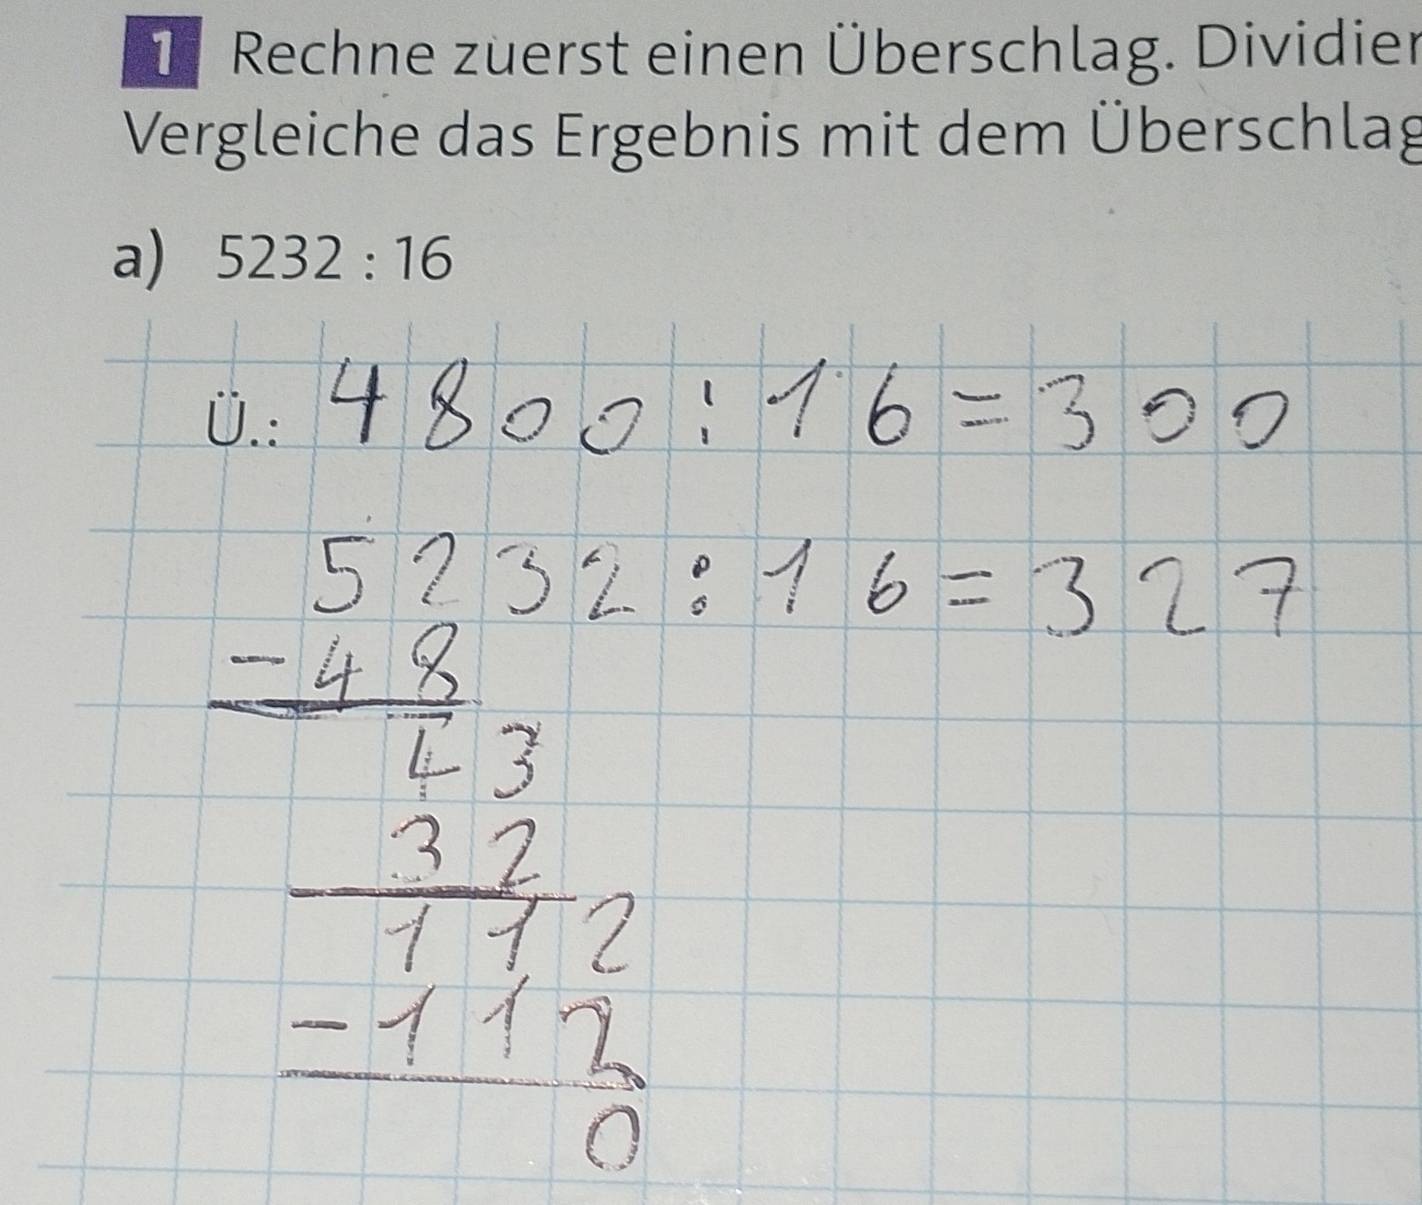 1 Rechne zuerst einen Überschlag. Dividier
Vergleiche das Ergebnis mit dem Überschlag
a) 5232 : 16
Ü.: 4800 : 16 = 300
5232 : 16 = 327
- 48
43
32
112
- 112
0